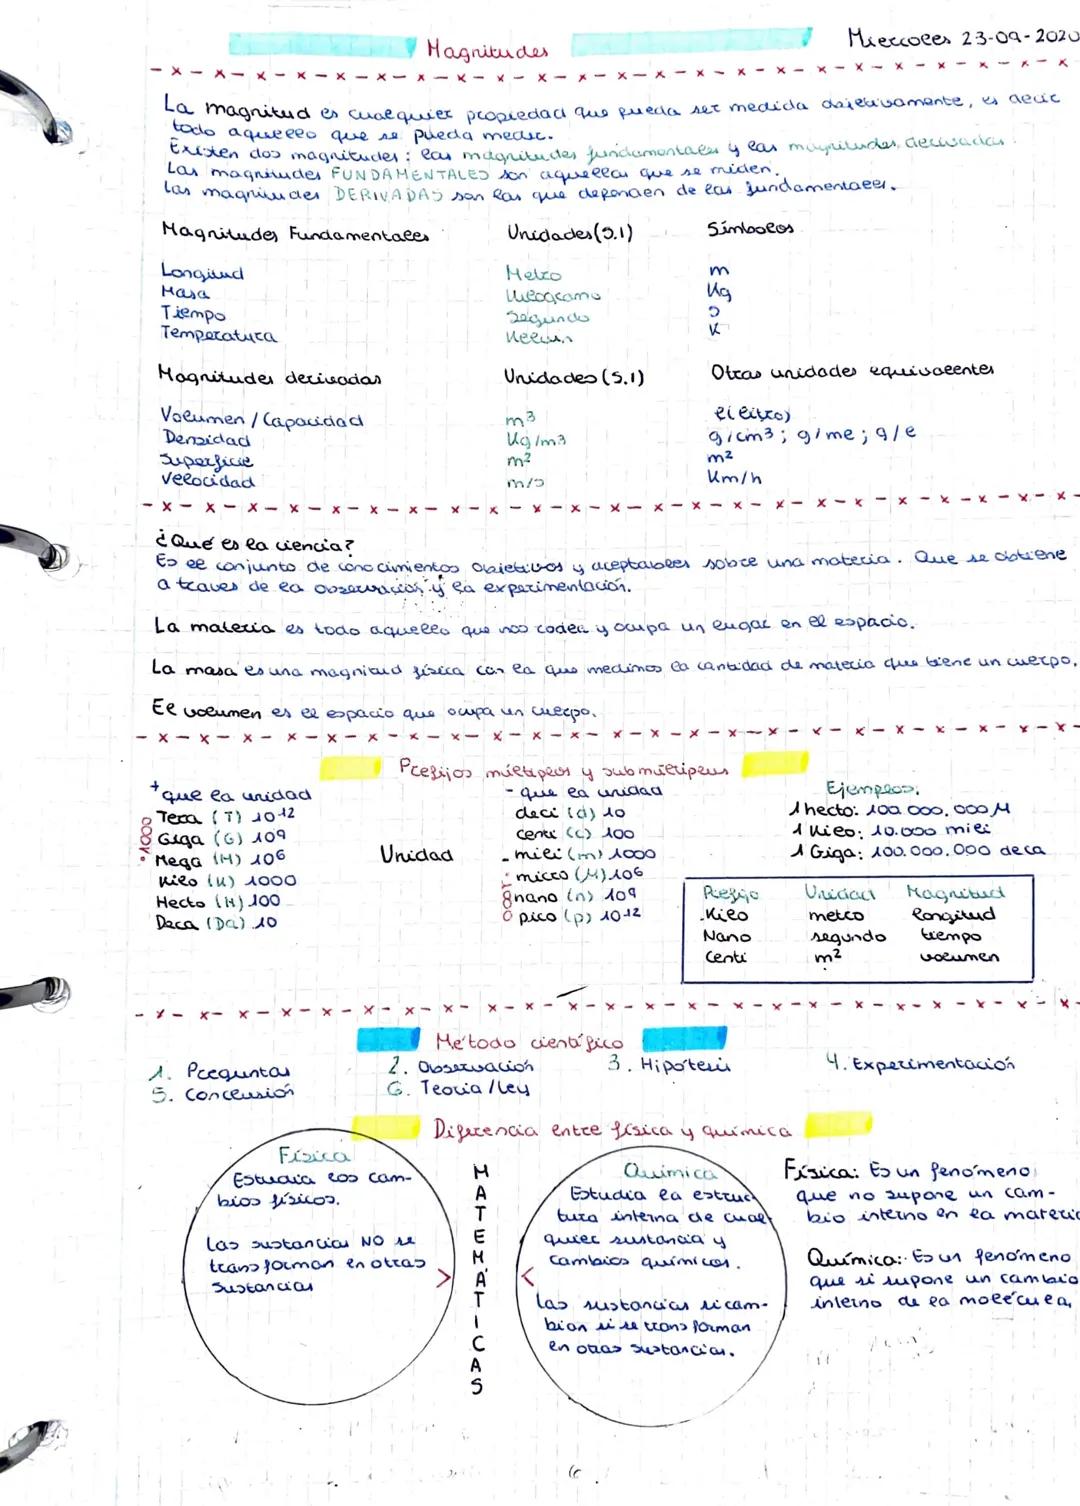 Magnitudes
Miercoles 23-09-2020
La magnitud es cualquier propiedad que pueda ser medida objetivamente, es decir
todo aquello que se pueda medir.
Existen dos magnitudes: las magnitudes fundamentales y las magnitudes derivadas.
Las magnitudes FUNDAMENTALES son aquellas que se miden.
Las magnitudes DERIVADAS son las que dependen de las fundamentales.
Magnitudes Fundamentales Unidades (S.I) Símbolos
Longitud Metro m
Masa Kilogramo Kg
Tiempo Segundo s
Temperatura Kelvin K
Magnitudes derivadas Unidades (S.I) Otras unidades equivalentes
Volumen / Capacidad m³ l (litro)
Densidad Kg/m3 g/cm3; g/ml; g/l
Superficie m² m²
Velocidad m/s Km/h
¿Qué es la ciencia?
Es el conjunto de conocimientos objetivos y aceptables sobre una materia. Que se obtiene
a traves de la observación y la experimentación.
La materia es todo aquello que nos rodea y ocupa un lugar en el espacio.
La masa es una magnitud física con la que medimos la cantidad de materia que tiene un cuerpo.
El volumen es el espacio que ocupa un cuerpo.
Prefijos múltiplos y submúltiplos
+ que la unidad
Tera (T) 10 12
Giga (G) 109
Mega (M) 106
Kilo (K) 1000
Hecto (H) 100
Deca (Da) 10
Unidad
- que la unidad
deci (d) 10
centi (c) 100
mili (m) 1000
micro (M) 106
nano (n) 109
pico (p) 10 12
Ejemplos:
1 hecto: 100.000.000 M
1 Kilo: 10.000 mili
1 Giga: 100.000.000 deca
Prefijo Unidad Magnitud
Kilo metro longitud
Nano segundo tiempo
Centi m² volumen
Método científico
1. Preguntas 2. Observación 3. Hipótesis 4. Experimentación
5. Conclusión 6. Teoria / ley
Diferencia entre física y química
Física
Estudia los cam-
bios físicos.
Las sustancias NO se
transforman en otras
sustancias
>
MATEMÁTICAS
<
Química
Estudia la estruc
tura interna de cual
quier sustancia y
cambios químicos.
Las sustancias si cam-
bian si se transforman
en otras sustancias.
Física: Es un fenómeno
que no supone un cam-
bio interno en la materia
Química: Es un fenómeno
que si supone un cambio
interno de la molécula,